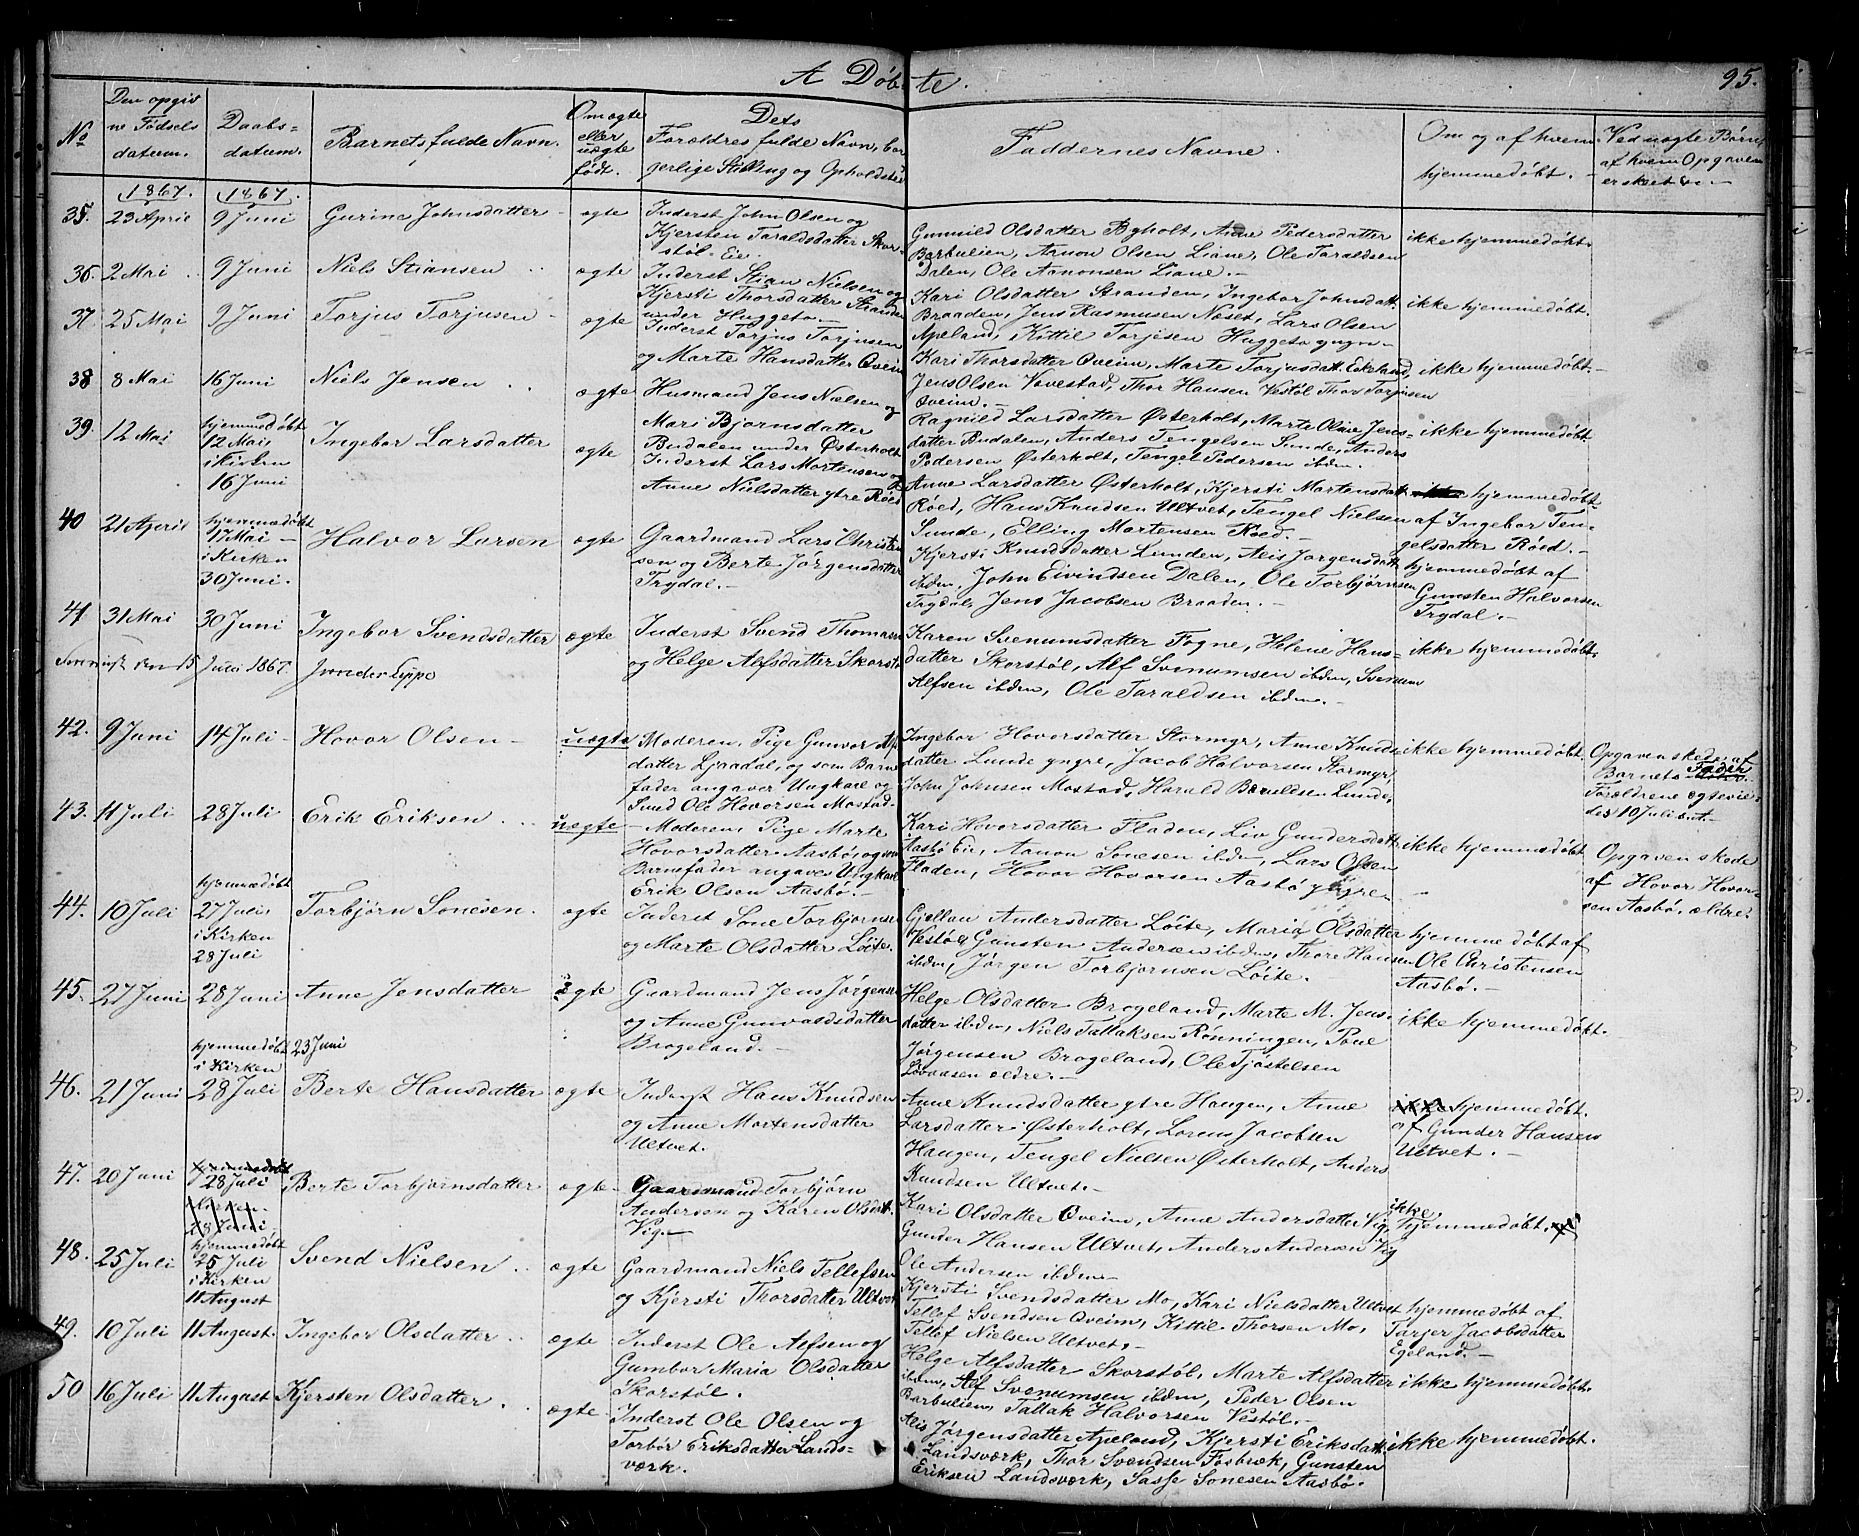 A Døbte.
95.
No
Den opgivne Fødsels datum.
Daabsdatum.
Barnets fulde Navn.
Om ægte eller uægte født.
Dets Forældres fulde Navn, borgerlige Stilling og Opholdsted
Faddernes Navne.
Om og af hvem hjemmedøbt.
Ved uægte Børn, af hvem Opgaven er skeet
1867.
1867.
35. 23 April 9 Juni Gurine Johnsdatter ægte
Inderst John Olsen og
Kjersten Taraldsdatter Skor-
støl Eie.
Gunnild Olsdatter Byholt, Anne Pedersdatter
Barbulien, Aanon Olsen Liane, Ole Taraldsen
Dalen, Ole Aanonsen Liane.
ikke hjemmedøbt.
36. 2 Mai 9 Juni Niels Stiansen ægte
Inderst Stian Nielsen og
Kjersti Thorsdatter Stranden
under Huggeto.
Kari Olsdatter Stranden, Ingebor Johnsdatt.
Braaden, Jens Rasmussen Næset, Lars Olsen
Apeland, Kittil Torjesen Huggeto yngre
ikke hjemmedøbt.
37. 25 Mai 9 Juni Torjus Torjusen ægte
Inderst Torjus Torjusen
og Marte Hansdatter Øveim
Kari Thorsdatter Øveim, Marte Torjusdatt. Eskeland,
Jens Olsen Vivestad, Thor Hansen Vestøl Thor Torjusen
Øveim.
ikke hjemmedøbt.
38 8 Mai 16 Juni Niels Jensen ægte
Husmand Jens Nielsen og
Mari Bjornsdatter
Budalen under Østerholt
Ragnild Larsdatter Østerholt, Marte Olave Jens-
datter Budalen, Anders Tengelsen Sunde, Anders
Pedersen Østerholt, Tengel Pedersen ibdm.
ikke hjemmedøbt.
39. 12 Mai
hjemmedøbt
12 Mai
i Kirken
16 Juni
Ingebor Larsdatter ægte
Inderst Lars Mortensen og
Anne Nielsdatter ytre Røed
Anne Larsdatter Østerholt, Kjersti Martensdatt.
Røed, Hans Knudsen Ultvet, Tengel Nielsen
Sunde, Elling Mortensen Røed.
hjemmedøbt
af Ingebor Ten-
gelsdatter Røed.
40 21 April
hjemmedøbt
17 Mai
i Kirken
30 Juni.
Halvor Larsen ægte
Gaardmand Lars Christen
sen og Berte Jørgensdatter
Trydal.
Kjersti Knudsdatter Lunden, Aeis Jørgensdatt.
ibdm, John Eivindsen Dalen, Ole Torbjørnsen
Trydal, Jens Jacobsen Braaden.
hjemmedøbt af
Gunsten Halvorsen
Trydal.
41 31 Mai 30 Juni Ingebor Svendsdatter ægte
15 Juli 1867.
Inderst Svend Thomasen
og Helge Alfsdatter Skorst.
Karen Svenumsdatter Fogne, Helene Hans-
datter Skorstøl, Alf Svenumsen ibdm, Svenum
Alfsen ibdm, Ole Taraldsen ibdm.
ikke hjemmedøbt.
42. 9 Juni 14 Juli Hovor Olsen uægte
Moderen, Pige Gunvor Alf
datter Ljaadal, og som Barne
fader angaver Ungkarl og
Smed Ole Hovorsen Mostad.
Ingebor Hovorsdatter Stormyr, Anne Knuds-
datter Lunde yngre, Jacob Halvorsen Stormyr,
John Johnsen Mostad, Harald Baruldsen Lunde,
ikke hjemmedøbt.
Opgaven skede af
Barnets Fader
Forældrene egtevie-
des 10 Juli
43. 11 Juli 28 Juli Erik Eriksen uægte
Moderen, Pige Marte
Hovorsdatter Aasbø, og som
Barnefader angaves Ungkarl
Erik Olsen Aasbø.
Kari Hovorsdatter Fladen, Liv Gundersdatt.
Aasbø Eie, Aanon Sonesen ibdm, Lars Olsen
Fladen, Hovor Hovorsen Aasbø yngre
ikke hjemmedøbt
Opgaven skede
af Hovor Hovor-
sen Aasbø, ældre.
44. 10 Juli
hjemmedøbt
27 Juli
i Kirken
28 Juli
Torbjørn Sonesen. ægte
Inderst Sone Torbjornsen
og Marte Olsdatter Løite.
Gjellau Andersdatter Løite, Maria Olsdatter
Vestøl, Gunsten Andersen ibdm, Thore Hansen
ibdm, Jørgen Torbjornsen Løite.
hjemmedøbt af
Ole Christensen
Aasbø.
45. 27 Juni 28 Juni Anne Jensdatter ægte
Gaardmand Jens Jørgensen
og Anne Gunvaldsdatter
Brogeland.
Helge Olsdatter Brogeland, Marte M. Jens-
datter ibdm, Niels Tallaksen Rønningen, Poul
Jørgensen Brogeland, Ole Tjøstelsen
Løvaasen ældre.
ikke hjemmedøbt.
46. 21 Juni
hjemmedøbt 23 Juni
i Kirken
28 Juli
Berte Hansdatter ægte
Inderst Hans Knudsen
og Anne Mortensdatter
Ultvet.
Anne Knudsdatter ytre Haugen, Anne
Larsdatter Østerholt, Lorens Jacobsen
Haugen, Tengel Nielsen Østerholt, Anders
Knudsen Ultvet.
ikke hjemmedøbt.
af Gunder Hansen
Ultvet.
47. 20 Juni
hjemmedøbt
28 Juli
i Kirken
28 Juni
Berte Torbjornsdatter ægte
Gaardmand Torbjörn
Andersen og Karen Olsdatt.
Vig.
Kari Olsdatter Øveim, Anne Andersdatter Vig,
Gunder Hansen Ultvet, Anders Andersen Vig
Ole Andersen ibdm
ikke
hjemmedøbt. af
48. 25 Juli
hjemmedøbt
25 Juli
i Kirken
11 August
Svend Nielsen ægte
Gaardmand Niels Tellefsen
og Kjersti Thorsdatter Ultvet
Kjersti Svendsdatter Mo, Kari Nielsdatter Ultvet
Tellef Svendsen Øveim, Kittil Thorsen Mo,
Tellef Nielsen Ultvet.
hjemmedøbt af
Tarjer Jacobsdatter
Egeland.
49. 10 Juli 11 August. Ingebor Olsdatter ægte
Inderst Ole Alfsen og
Gumbor Maria Olsdatter
Skorstøl.
Helge Alfsdatter Skorstøl, Marte Alfsdatter
ibdm, Alf Svenumsen ibdm, Peder Olsen
Barbulien, Tallak Halvorsen Vestøl.
ikke hjemmedøbt.
50 16 Juli 11 August Kjersten Olsdatter ægte
Inderst Ole Olsen og
Torbor Eriksdatter Lands-
værk.
Aeis Jørgensdatter Apeland, Kjersti Eriksdatt.
Landsværk, Thor Svendsen Fosbræk, Gunsten
Eriksen Landsværk, Sasse Sonesen Aasbø.
ikke hjemmedøbt.